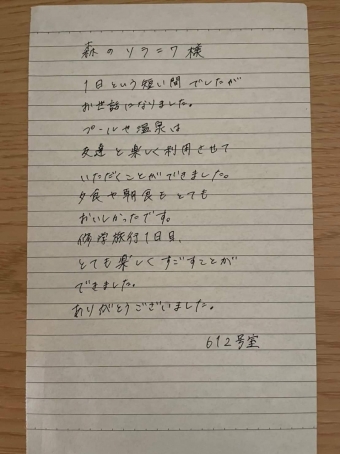 森のソラニワ様
1日という短い間でしたが
お世話になりました。
プールや温泉は
友達と楽しく利用させて
いただくことができました。
夕食や朝食もとても
おいしかったです。
修学旅行1日目、
とても楽しくすごすことが
できました。
ありがとうございました。
612号室